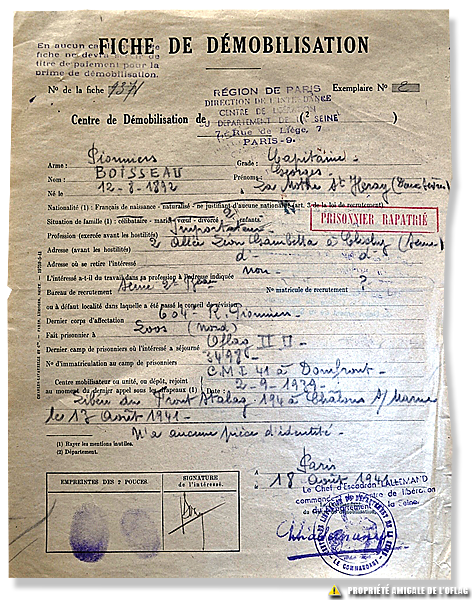 En aucun cas
fiche ne devra
titre de paiement pour la
prime de démobilisation.
FICHE DE DÉMOBILISATION
N° de la fiche
Exemplaire N° 2
RÉGION DE PARIS
DIRECTION DE L'INTENDANCE
CENTRE DE LIBÉRATION
DU DÉPARTEMENT DE LA SEINE
7, Rue de Liège, 7
PARIS-9.
Centre de Démobilisation de
Arme : Pionniers
Grade : Capitaine
Nom : BOISSEAU
Prénoms : Georges
Né le 12-8-1892 La Mothe St Heray (Deux Sèvres)
Nationalité (1) : Français de naissance - naturalisé - ne justifiant d'aucune nationalité (art. 3 de la loi de recrutement).
Situation de famille (1) : célibataire - marié - veuf - divorcé - 2 enfants.
PRISONNIER RAPATRIÉ
Profession (exercée avant les hostilités) Importateur
Adresse (avant les hostilités) 2 Allée Léon Gambetta à Clichy (Seine)
Adresse où se retire l'intéressé d° d°
L'intéressé a-t-il du travail dans sa profession à l'adresse indiquée non
Bureau de recrutement Seine 2e N° matricule de recrutement ?
ou à défaut localité dans laquelle il a été passé le conseil de révision
Dernier corps d'affectation 604 R. Pionniers
Fait prisonnier à Loos (Nord)
Dernier camp de prisonniers où l'intéressé a séjourné Oflag II D
N° d'immatriculation au camp de prisonniers 34/98
Centre mobilisateur ou unité, ou dépôt, rejoint C.M.I 41 à Domfront
au moment du dernier appel sous les drapeaux (1) Date 2-9-1939
Libéré du Front Stalag 194 à Châlons s/ Marne
le 13 Août 1941
N'a aucune pièce d'identité
(1) Rayer les mentions inutiles.
(2) Département.
EMPREINTES DES 2 POUCES.
SIGNATURE
de l'intéressé.
A Paris
18 Août 1941
Le Chef d'Escadron ALLEMAND
commandant le Centre de libération
du département de la Seine.
LE COMMANDANT
PROPRIÉTÉ AMICALE DE L'OFLAG